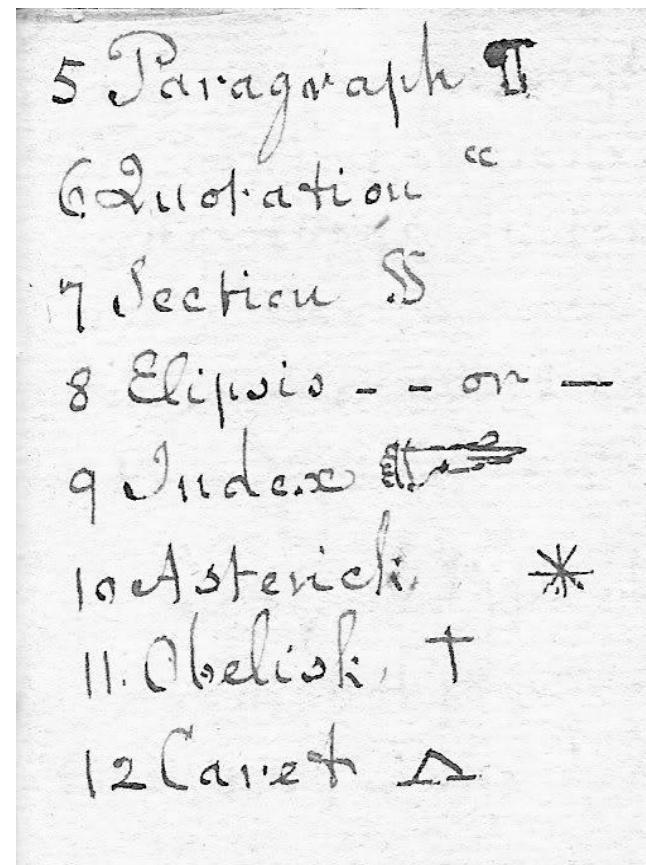 5 Paragraph ¶
6 Quotation “
7 Section §
8 Elipsis - - or —
9 Index ☞
10 Asterick *
11. Obelisk. †
12 Caret ∆